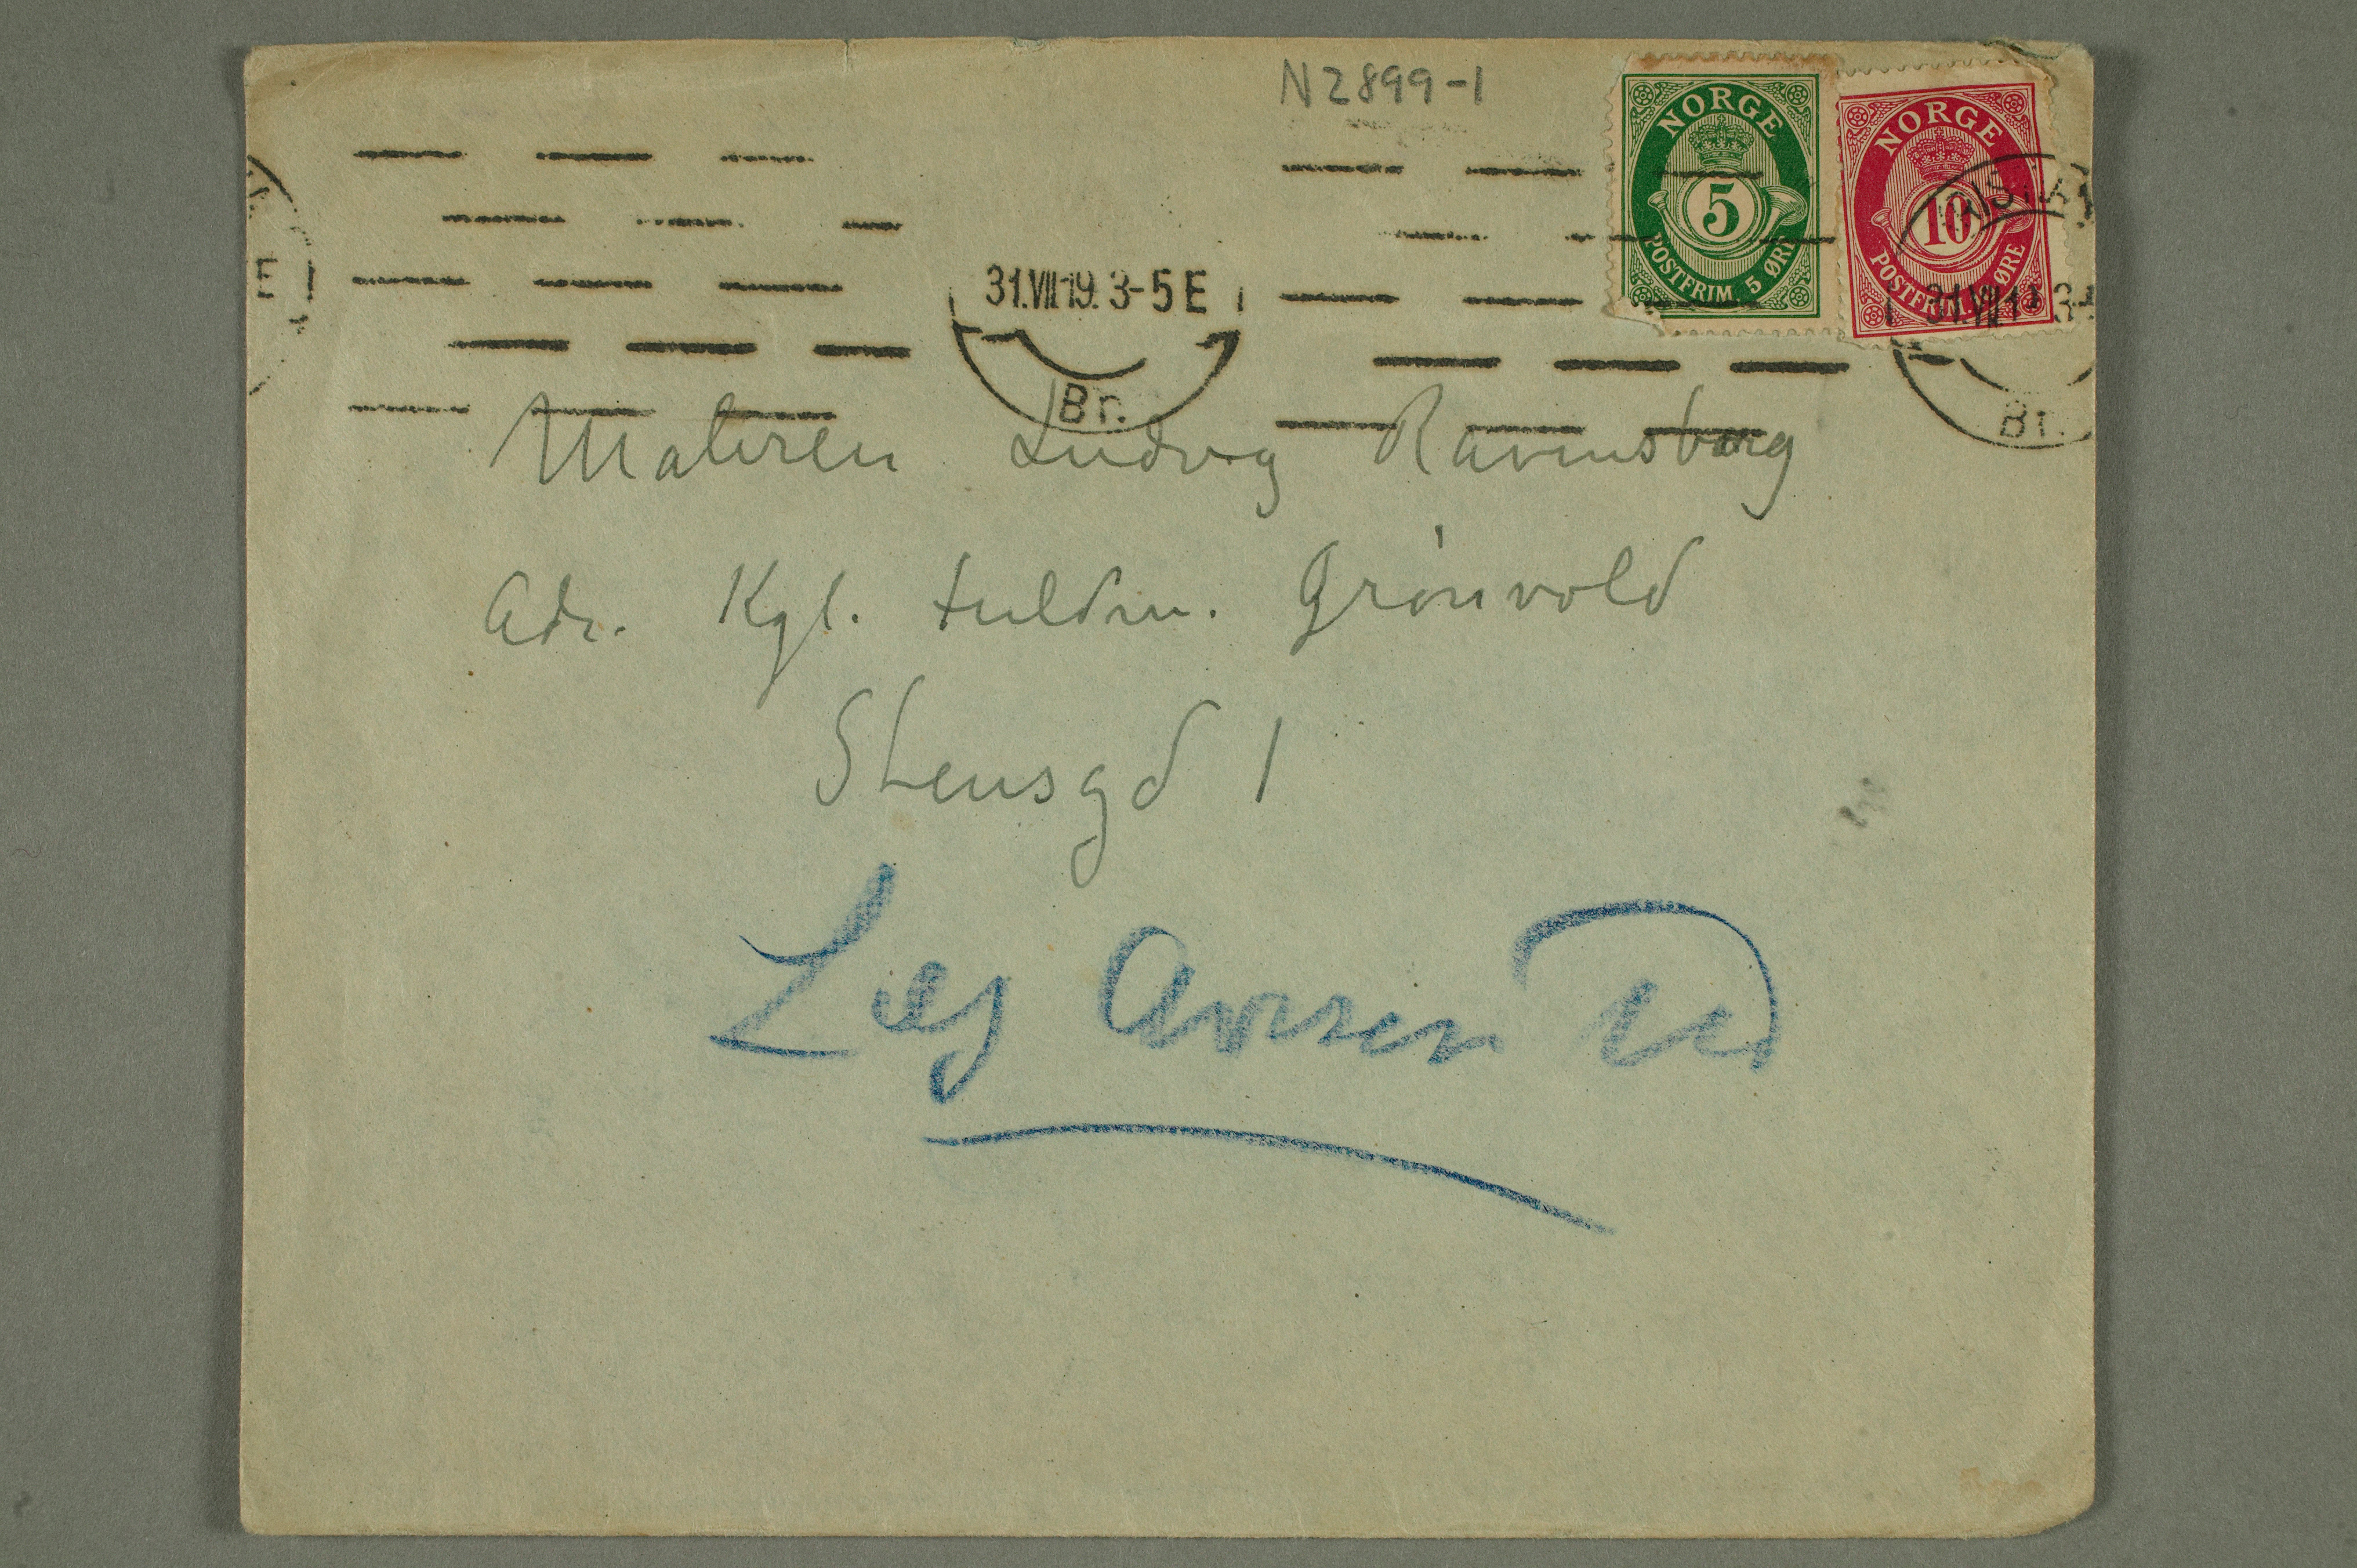 N 2899-1
NORGE
5
POSTFRIM. 5 ØRE
NORGE
10
POSTFRIM. ØRE
31.VII.19. 3-5 E
Br.
31.VII 1 3-
Br.
E
Maleren Ludvig Ravensberg
Adr. Kgl. fuldm. Grönvold
Stensgd 1